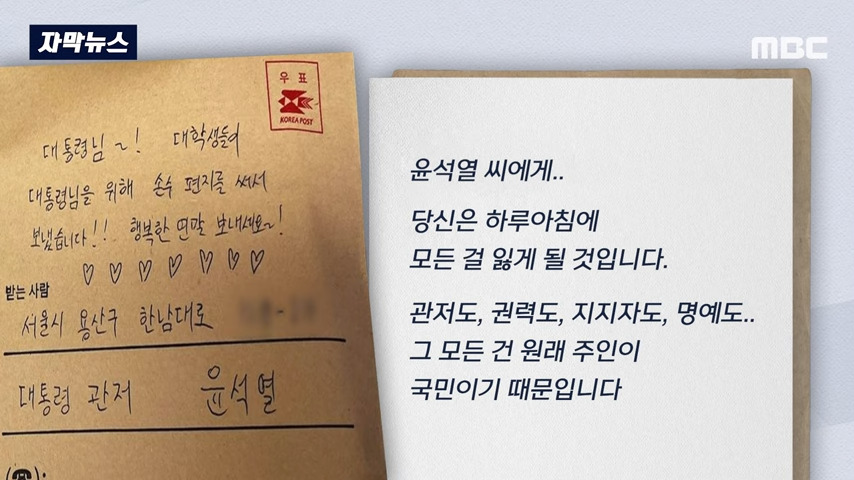 자막뉴스
MBC
우표
KOREA POST
대통령님~! 대학생들이
대통령님을 위해 손수 편지를 써서
보냈습니다!! 행복한 연말 보내세요~!
♡ ♡ ♡ ♡ ♡ ♡ ♡
받는 사람
서울시 용산구 한남대로
대통령 관저 윤석열
윤석열 씨에게..
당신은 하루아침에
모든 걸 잃게 될 것입니다.
관저도, 권력도, 지지자도, 명예도..
그 모든 건 원래 주인이
국민이기 때문입니다